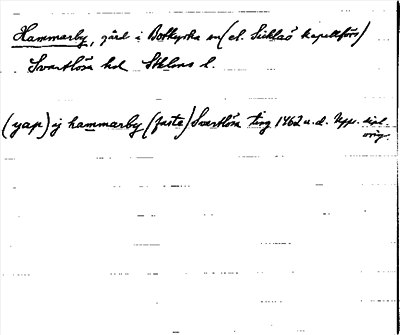 Hammarby, gård i Botkyrka sn (el. Sicklaö kapellförs)
Svartlösa hd Sthlms l.
(yap) ij hammarby (faste) Svartlösa ting 1462 u.d. Upps. dipl.
orig.